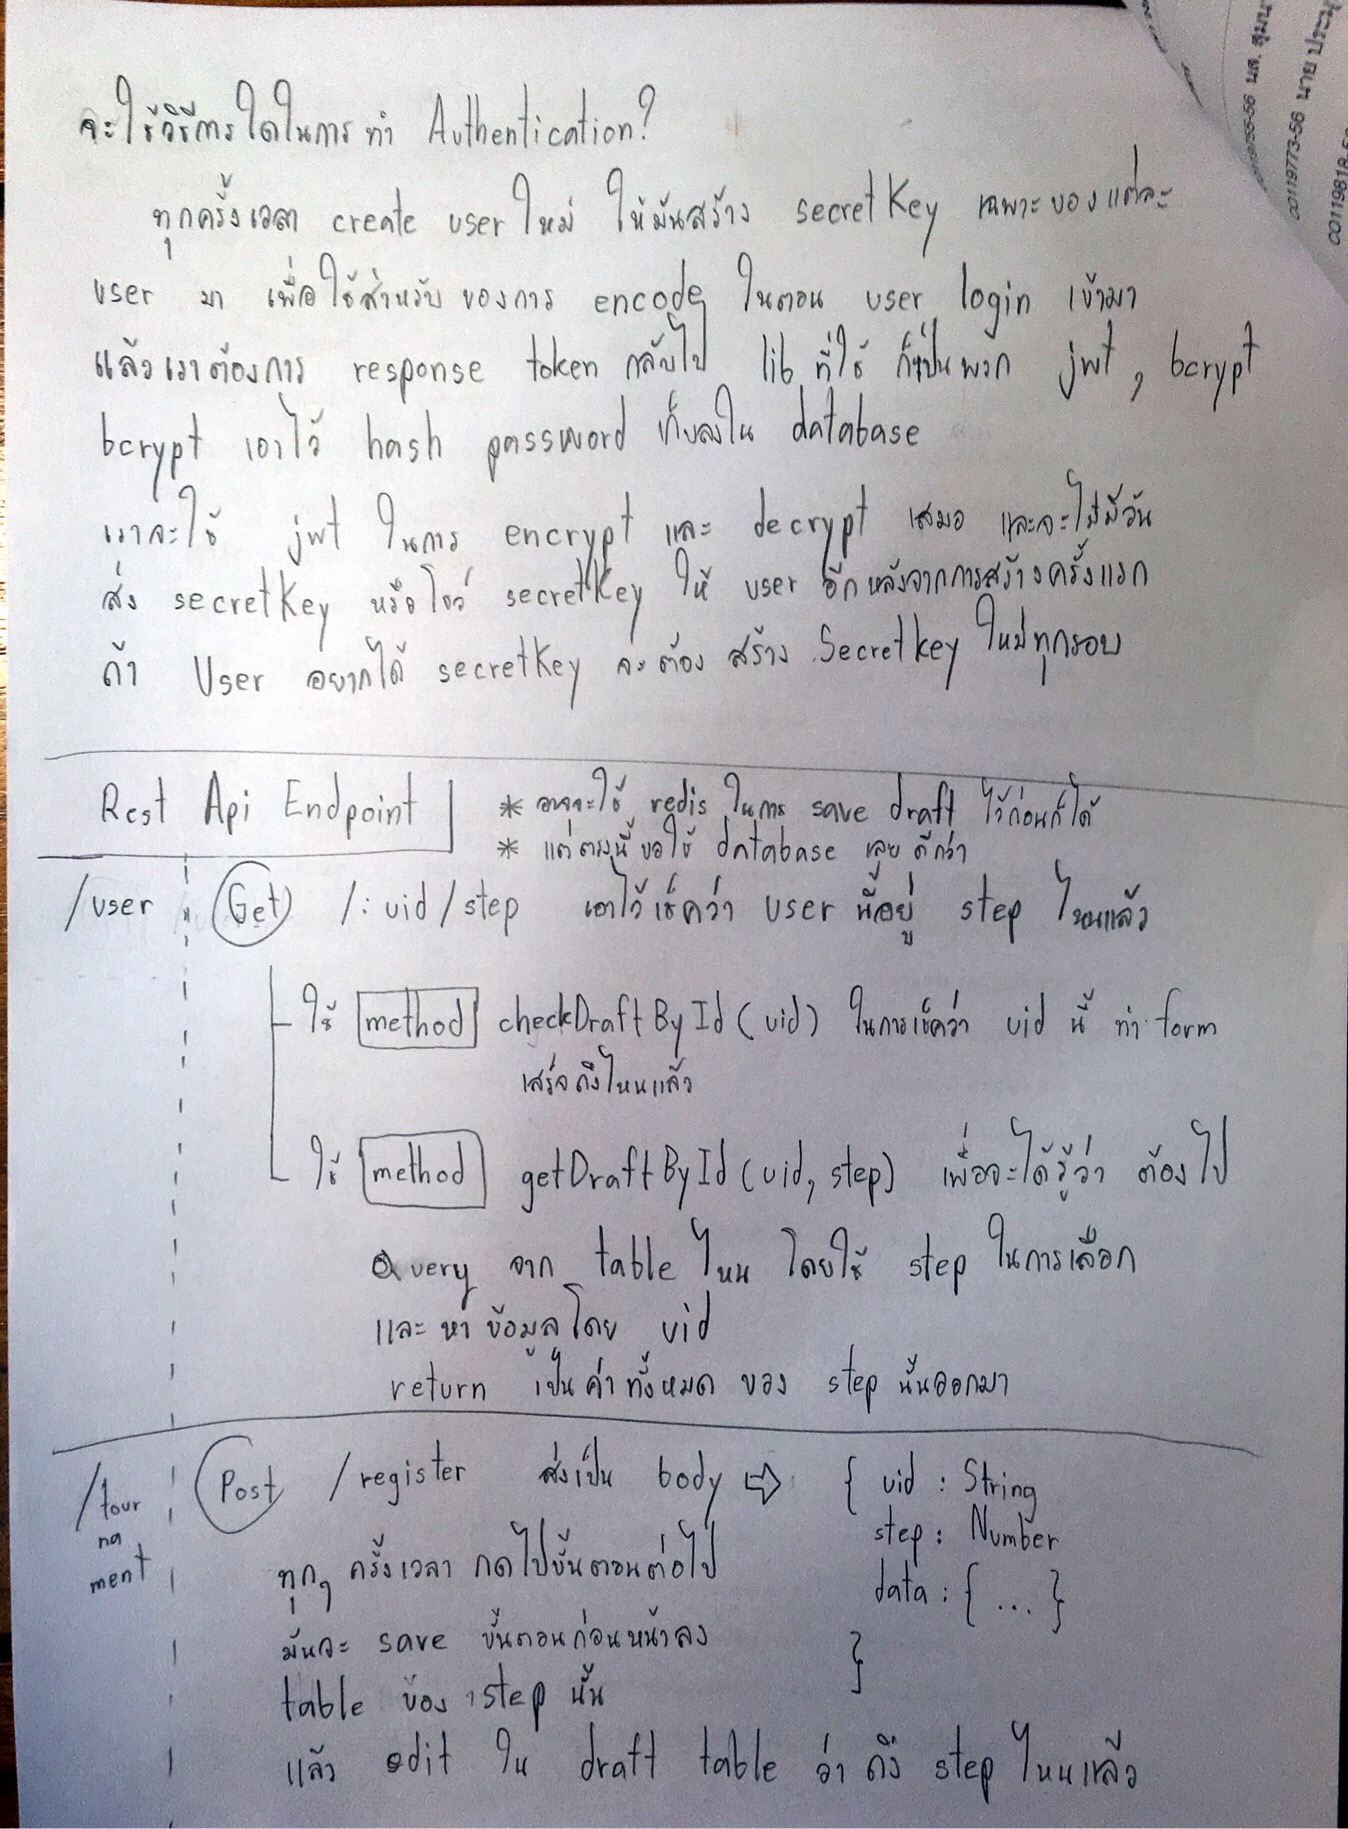 จะใช้วิธีการใดในการทำ Authentication?
ทุกครั้งเวลา create user ใหม่ ให้มันสร้าง secretKey เฉพาะของแต่ละ
user มา เพื่อใช้สำหรับ ของการ encode ในตอน user login เข้ามา
แล้วเราต้องการ response token กลับไป lib ที่ใช้ ก็จะเป็นพวก jwt, bcrypt
bcrypt เอาไว้ hash password เก็บลงใน database
เราจะใช้ jwt ในการ encrypt และ decrypt เสมอ และจะไม่มีวัน
ส่ง secretKey หรือโชว์ secretKey ให้ user อีกหลังจากการสร้างครั้งแรก
ถ้า User อยากได้ secretKey จะต้อง สร้าง Secretkey ใหม่ทุกรอบ
Rest Api Endpoint
* อาจจะใช้ redis ในการ save draft ไว้ก่อนก็ได้
* แต่ตรงนี้ขอใช้ database เลย ดีกว่า
/user Get /:uid/step เอาไว้เช็คว่า user นี้อยู่ step ไหนแล้ว
ใช้ method checkDraftById(uid) ในการเช็คว่า uid นี้ ทำ form
เสร็จถึงไหนแล้ว
ใช้ method getDraftById(uid, step) เพื่อจะได้รู้ว่า ต้องไป
Query จาก table ไหน โดยใช้ step ในการเลือก
และ หา ข้อมูลโดย uid
return เป็นค่าทั้งหมด ของ step นั้นออกมา
/tour
na
ment
Post /register ส่งเป็น body ⇨ { uid : String
step : Number
data : { ... }
}
ทุกๆ ครั้งเวลา กดไปขั้นตอนต่อไป
มันจะ save ขั้นตอนก่อนหน้าลง
table ของ step นั้น
แล้ว edit ใน draft table ว่า ถึง step ไหนแล้ว
นส. สุมน
00119773-56 นาย ประมุ